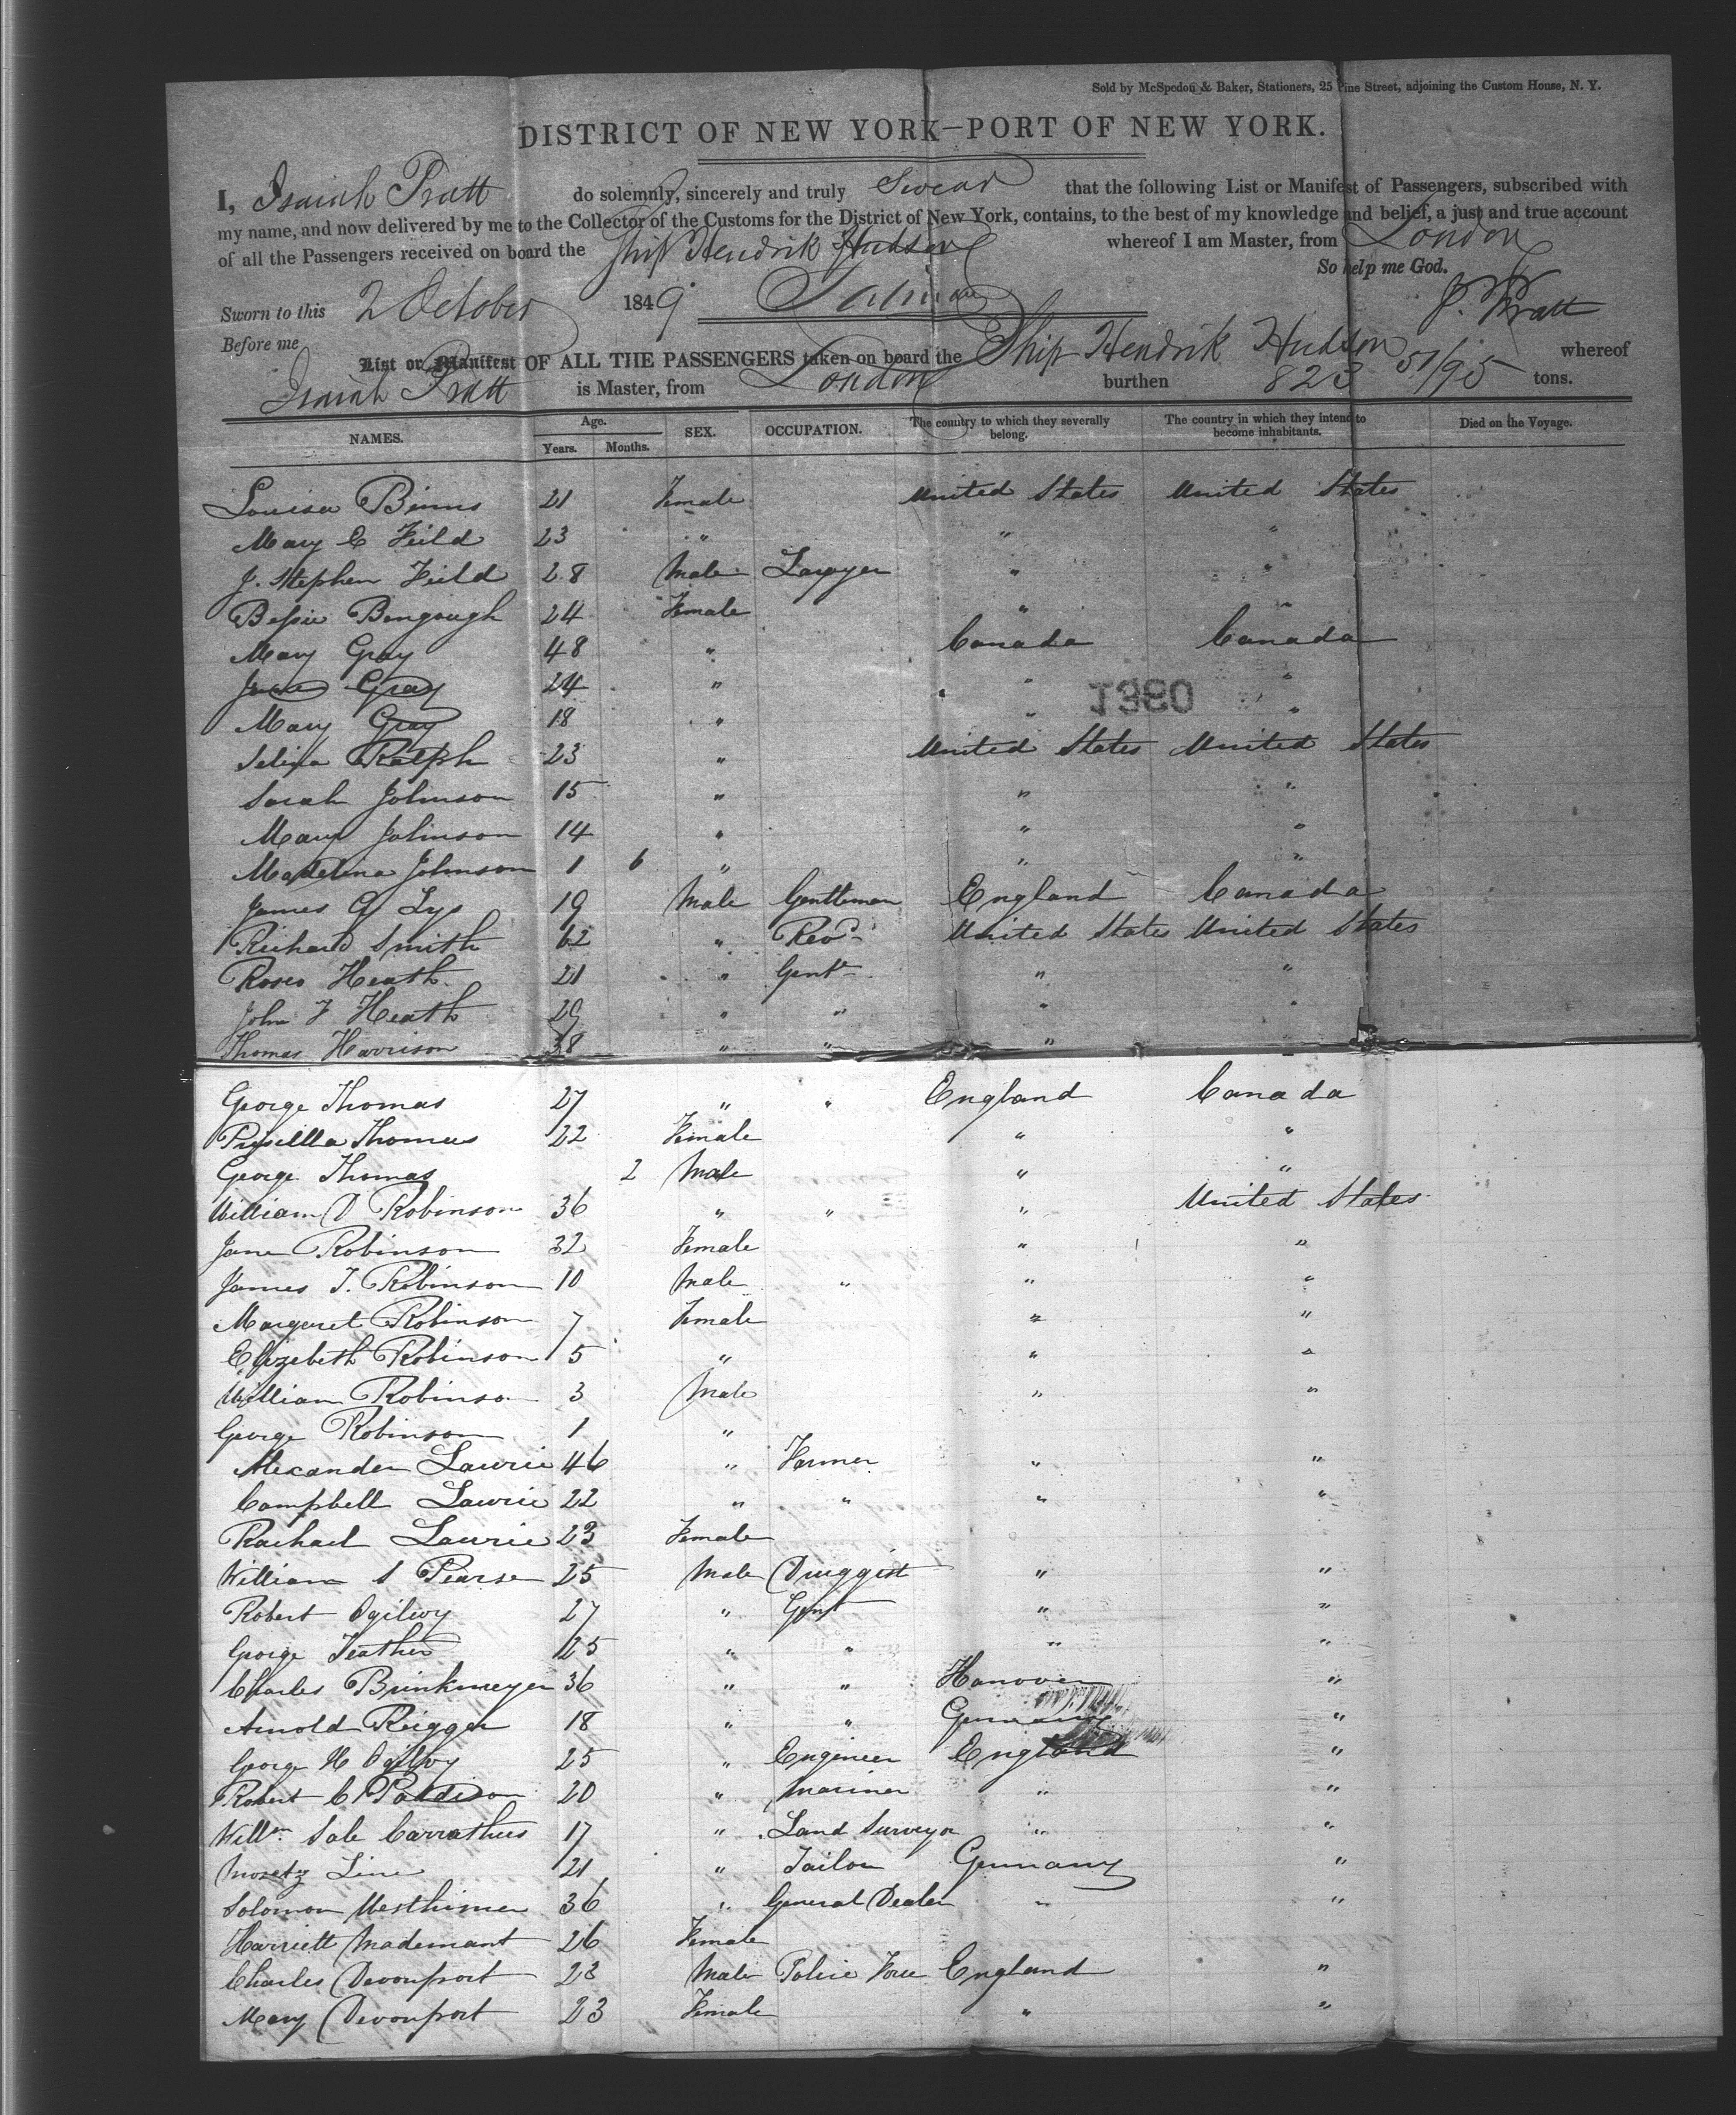 Sold by McSpedon & Baker, Stationers, 25 Pine Street, adjoining the Custom House, N. Y.
DISTRICT OF NEW YORK—PORT OF NEW YORK.
I, Isaiah Pratt do solemnly, sincerely and truly Swear that the following List or Manifest of Passengers, subscribed with
my name, and now delivered by me to the Collector of the Customs for the District of New York, contains, to the best of my knowledge and belief, a just and true account
of all the Passengers received on board the Ship Hendrik Hudson whereof I am Master, from London
So help me God.
Sworn to this 2 October 1849 J. Pratt
Before me
List or Manifest OF ALL THE PASSENGERS taken on board the Ship Hendrik Hudson whereof
Isaiah Pratt is Master, from London burthen 823 51/95 tons.
NAMES. Age. Years. Months. SEX. OCCUPATION. The country to which they severally belong. The country in which they intend to become inhabitants. Died on the Voyage.
Louisa Binns 21 Female United States United States
Mary E Feild 23 " " "
J. Stephen Feild 28 Male Lawyer " "
Bessie Bengough 24 Female " "
Mary Gray 48 " Canada Canada
Gray 24 " " "
1360
Mary Gray 18 " " "
Selina Ralph 23 " United States United States
Sarah Johnson 15 " " "
Mary Johnson 14 " " "
Madelina Johnson 1 6 " " "
James G Lys 19 Male Gentleman England Canada
Richard Smith 62 " Revd United States United States
Rosco Heath 21 " Gent " "
John F Heath 29 " " " "
Thomas Harrison 38 " " " "
George Thomas 27 " " England Canada
Prisella Thomas 22 Female " "
George Thomas 2 Male " "
William D Robinson 36 " " " United States
Jane Robinson 32 Female " "
James T. Robinson 10 Male " " "
Margaret Robinson 7 Female " "
Elizebeth Robinson 5 " " "
William Robinson 3 Male " "
George Robinson 1 "
Alexander Lawrie 46 " Farmer " "
Campbell Lawrie 22 " " " "
Rachael Lawrie 23 Female
William S Pearse 25 Male Druggist " "
Robert Ogilwy 27 " Gent " "
George Feather 25 " " " "
Charles Brinkmeyer 36 " " Hanover "
Arnold Reigger 18 " " Germany "
George H Ogilwy 25 " Engineer England "
Robert C Pattison 20 " Mariner " "
Willm Sale Carrathus 17 " Land Surveyor " "
Moretz Line 21 " Tailor Germany "
Solomon Westhimer 36 " General Dealer " "
Harriett Mademant 26 Female
Charles Devonport 23 Male Police Force England "
Mary Devonport 23 Female " "